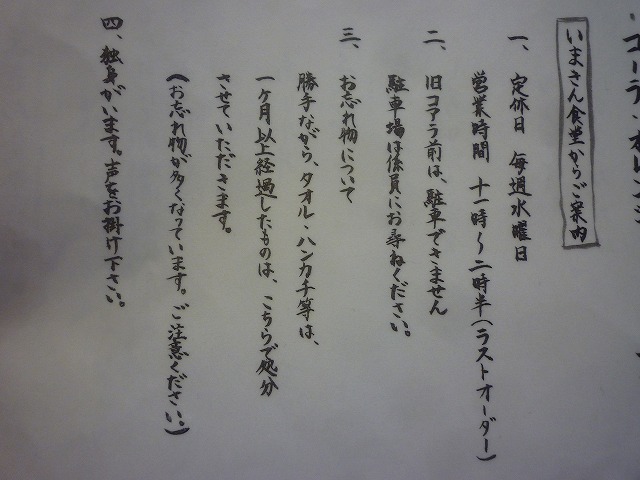 ・コーラ・オレンジ
いまさん食堂からご案内
一、定休日 毎週水曜日
営業時間 十一時〜二時半(ラストオーダー)
二、旧コアラ前は、駐車できません
駐車場は係員にお尋ねください。
三、お忘れ物について
勝手ながら、タオル・ハンカチ等は、
一ヶ月以上経過したものは、こちらで処分
させていただきます。
(お忘れ物が多くなっています。ご注意ください。)
四、独身がいます。声をお掛け下さい。